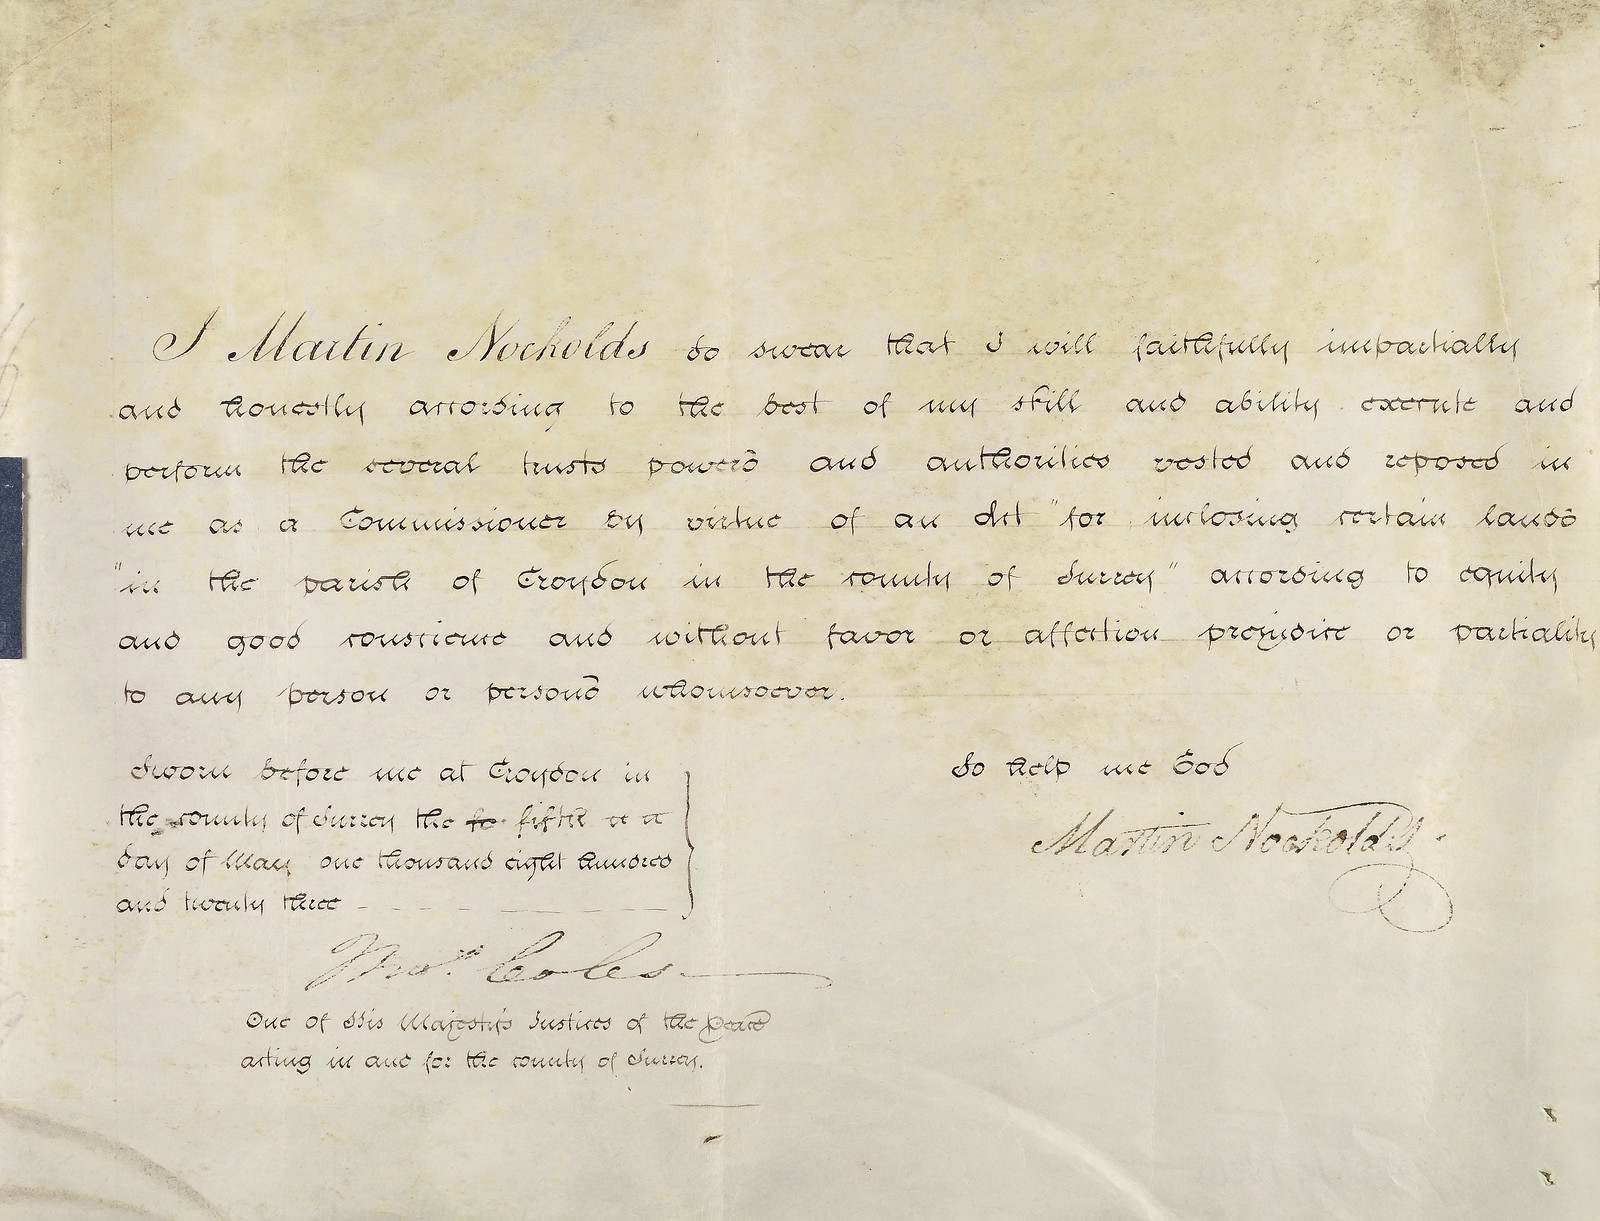 I Martin Nockolds do swear that I will faithfully impartially
and honestly according to the best of my skill and ability execute and
perform the several trusts powers and authorities vested and reposed in
me as a Commissioner by virtue of an Act "for inclosing certain lands
"in the parish of Croydon in the county of Surrey" according to equity
and good conscience and without favor or affection prejudice or partiality
to any person or persons whomsoever.
So help me God
Martin Nockolds
Sworn before me at Croydon in
the county of Surrey the fifth
day of May one thousand eight hundred
and twenty three
Coles
One of His Majesty's Justices of the Peace
acting in and for the county of Surrey.